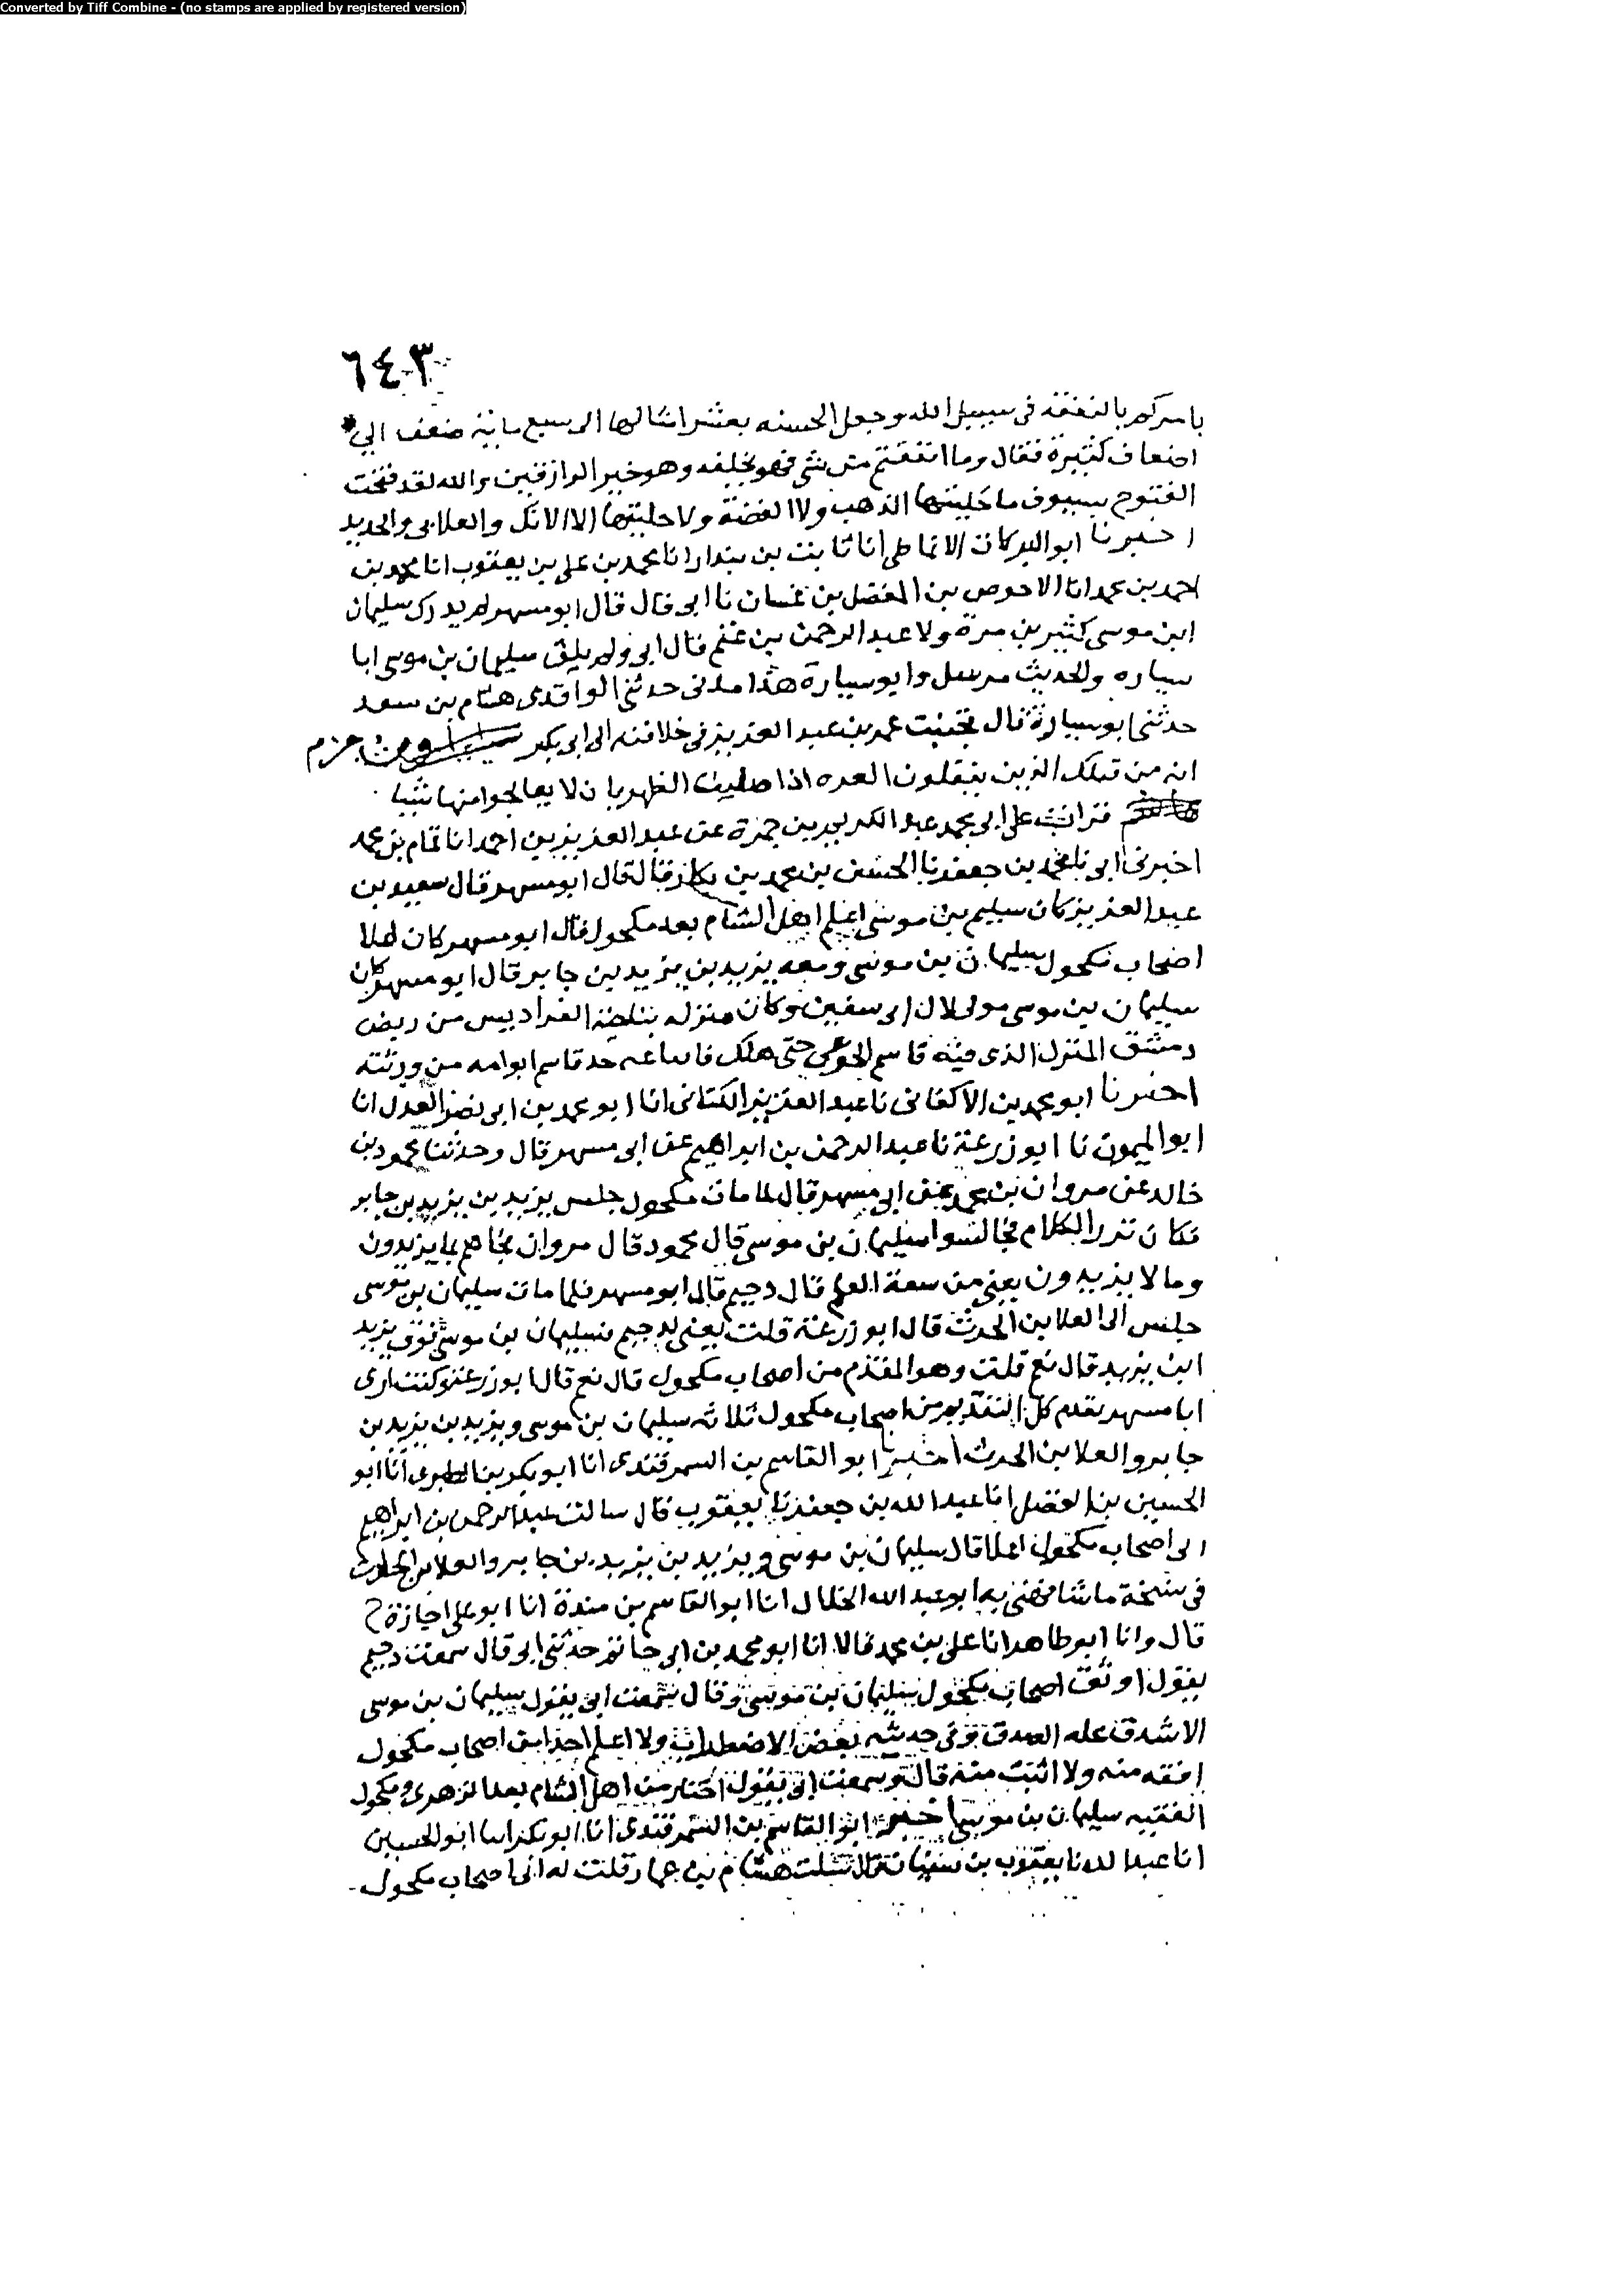 Converted by Tiff Combine - (no stamps are applied by registered version)
٦٤٣
يامركم بالنفقة فى سبيل الله وجعل الحسنه بعشر امثالها الى سبع ماية ضعف الي
اضعاف كثيرة فقال وما انفقتم من شى فهو يخلفه وهو خير الرازقين والله لقد فتحت
الفتوح بسيوف ما حليتها الذهب ولا الفضة ولا حليتها الا الانك والعلابى والحديد
اخبرنا ابو البركات الانماطى انا ثابت بن بندار انا محمد بن على بن يعقوب انا محمد بن
احمد بن محمد انا الاحوص بن المفضل بن غسان نا ابى قال قال ابو مسهر لم يدرك سليمان
ابن موسى كثير بن مرة ولا عبد الرحمن بن غنم قال ابى ولم يلق سليمان بن موسى ابا
سياره والحديث مرسل وابو سيارة هذا مدنى حدثنى الواقدى هشام بن سعد
حدثنى ابو سيارة قال عمر بن عبد العزيز فى خلافته الى ابى بكر بن حزم
انه من قبلك الذين اذا صليت الظهر بان لا يعالجوا منها شيا
قرات على ابى محمد عبد الكريم بن حمزة عن عبد العزيز بن احمد انا تمام بن محمد
اخبرنى ابى نا محمد بن جعفر نا الحسن بن محمد بن بكار قال قال ابو مسهر قال سعيد بن
عبد العزيز كان سليم بن موسى اعلم اهل الشام بعد مكحول قال ابو مسهر كان اعلا
اصحاب مكحول سليمان بن موسى ومعه يزيد بن يزيد بن جابر قال ابو مسهر كان
سليمان بن موسى مولى لال ابى سفين وكان منزله بناحية الفراديس من ربض
دمشق المنزل الذى فيه قاسم الجوعى حتى هلك جد قاسم ابو امه من ورثته
اخبرنا ابو محمد بن الاكفانى نا عبد العزيز الكتانى انا ابو محمد بن ابى نصر العدل انا
ابو الميمون نا ابو زرعة نا عبد الرحمن بن ابراهيم عن ابى مسهر قال وحدثنا محمود بن
خالد عن مروان بن محمد عن ابى مسهر قال لما مات مكحول جلس يزيد بن يزيد بن جابر
فكان نزر الكلام فجالسوا سليمان بن موسى قال محمود قال مروان فجاهم بما يزيدون
وما لا يزيدون يعنى من سعة العلم قال دحيم قال ابو مسهر فلما مات سليمان بن موسى
جلس الى العلا بن الحرث قال ابو زرعة قلت يعنى لدحيم فسليمان بن موسى فوق يزيد
ابن يزيد قال نعم قلت وهو المقدم من اصحاب مكحول قال نعم قال ابو زرعة وكنت ارى
ابا مسهر يقدم كل التقديم من اصحاب مكحول ثلاثه سليمان بن موسى ويزيد بن يزيد بن
جابر والعلا بن الحرث اخبرنا ابو القاسم بن السمرقندى انا ابو بكر بن الطبرى انا ابو
الحسين بن الفضل انا عبد الله بن جعفر نا يعقوب قال سالت عبد الرحمن بن ابراهيم
اى اصحاب مكحول اعلا قال سليمان بن موسى ويزيد بن يزيد بن جابر والعلا بن الحارث
فى نسخة ما شافهنى به ابو عبد الله الخلال انا ابو القاسم بن مندة انا ابو على اجازة ح
قال وانا ابو طاهر انا على بن محمد قالا انا ابو محمد بن ابى حاتم حدثنى ابى قال سمعت دحيم
يقول اوثق اصحاب مكحول سليمان بن موسى وقال سمعت ابى يقول سليمان بن موسى
الاشدق محله الصدق وفى حديثه بعض الاضطراب ولا اعلم احدا من اصحاب مكحول
افقه منه ولا اثبت منه قال وسمعت ابى يقول اختار من اهل الشام بعد الزهرى ومكحول
الفقيه سليمان بن موسى اخبرنا ابو القاسم بن السمرقندى انا ابو بكر انا ابو الحسين
انا عبد الله نا يعقوب بن سفيان قال سئلت هشام بن عمار قلت له اى اصحاب مكحول